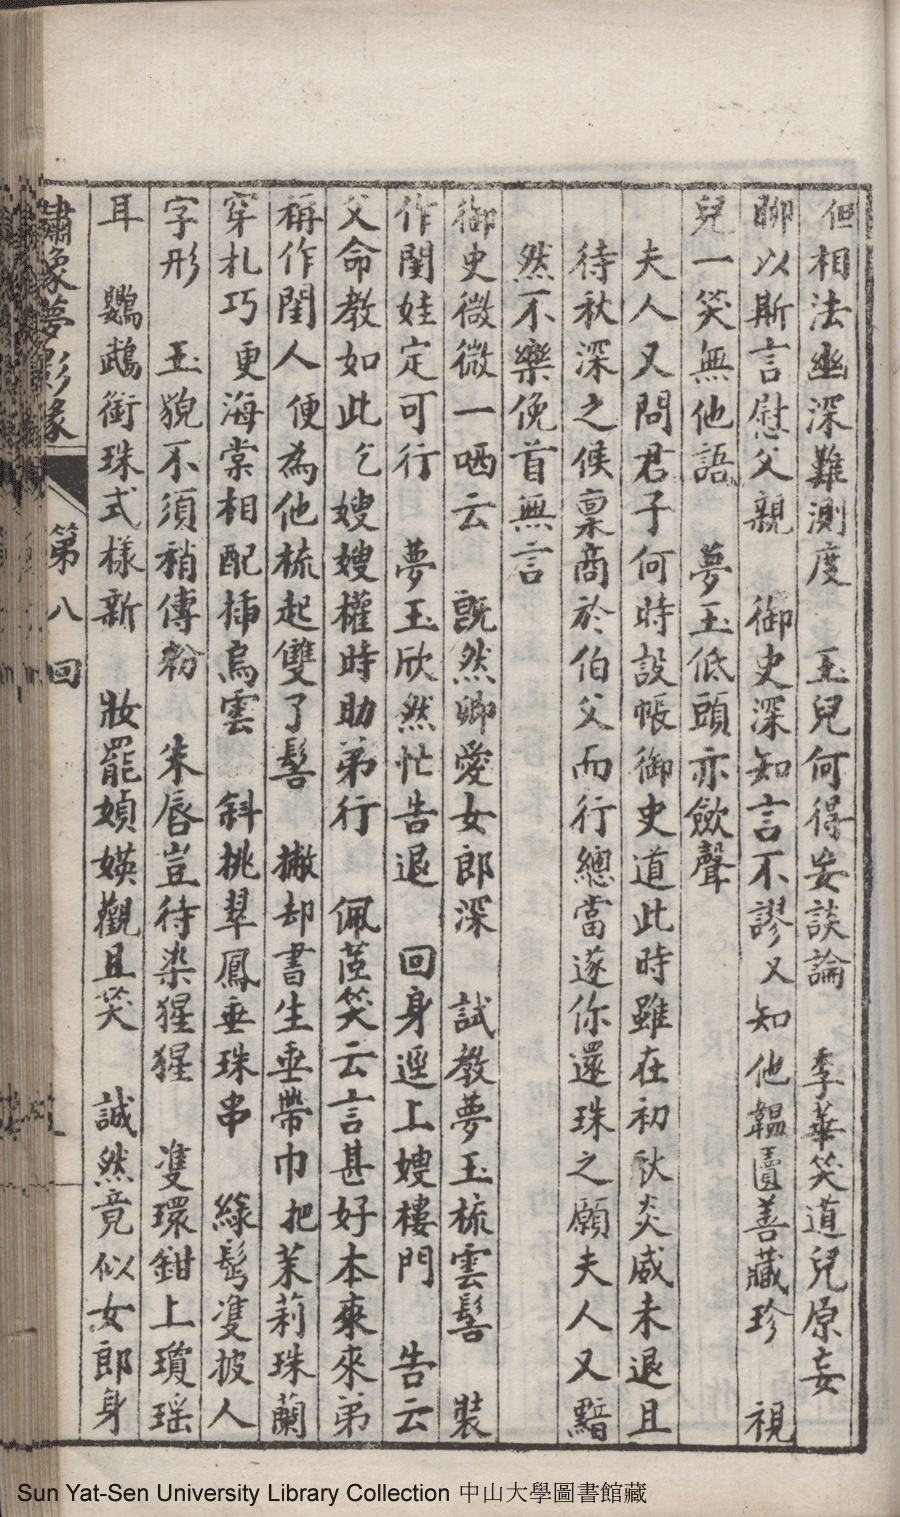 但相法幽深難測度　玉兒何得妄談論　季華笑道兒原妄
聊以斯言慰父親　御史深知言不謬又知他韞匵善藏珍　視
兒一笑無他語　夢玉低頭亦歛聲
夫人又問君子何時設帳御史道此時雖在初秋炎威未退且
待秋深之候稟商於伯父而行總當遂你還珠之願夫人又黯
然不樂俛首無言
御史微微一哂云　旣然卿愛女郎深　試教夢玉梳雲髻　裝
作閨娃定可行　夢玉欣然忙告退　回身逕上嫂樓門　告云
父命教如此乞嫂嫂權時助弟行　佩茝笑云言甚好本來來弟
稱作閨人便為他梳起雙丫髻　撇却書生垂帶巾把茉莉珠蘭
穿札巧　更海棠相配揷烏雲　斜挑翠鳳垂珠串　綠鬓雙披人
字形　玉貌不須稍傅粉　朱唇豈待染猩猩　雙環鉗上瓊瑶
耳　鸚鵡銜珠式樣新　妝罷媜媖觀且笑　誠然竟似女郎身
繡像夢影緣　第八回
Sun Yat-Sen University Library Collection 中山大學圖書館藏